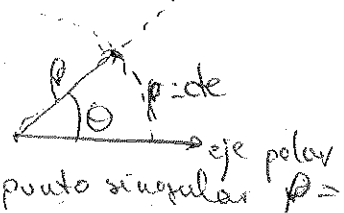 ρ
θ
ρ=cte
eje polar
punto singular ρ=